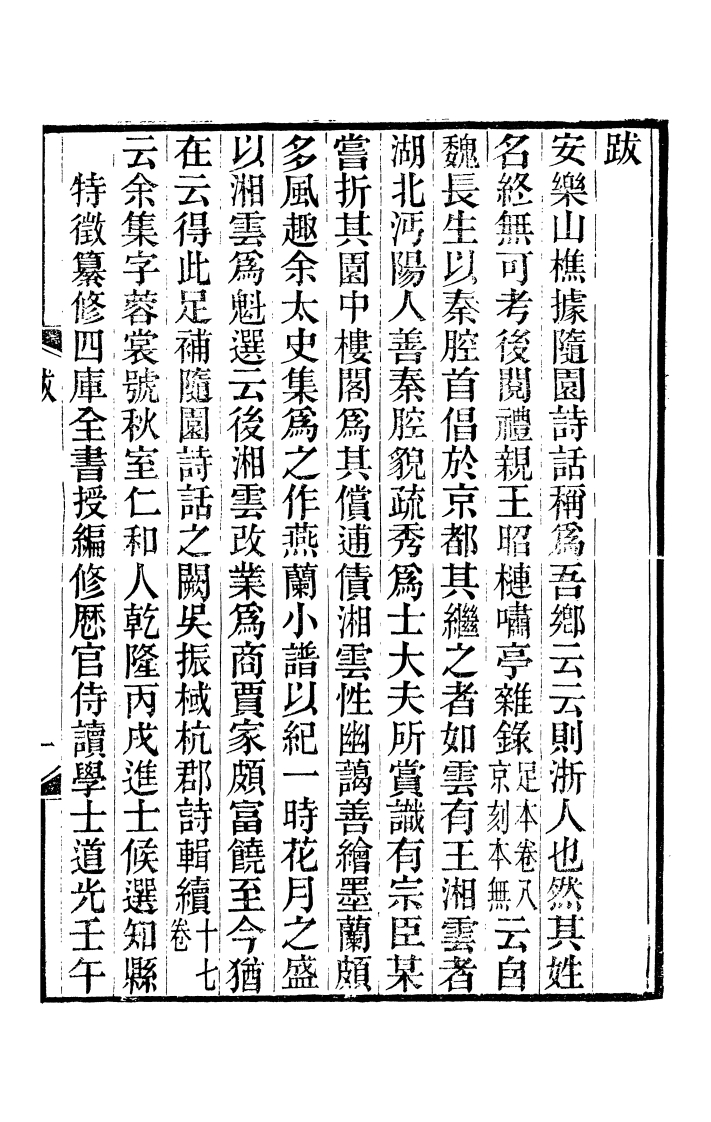 跋
安樂山樵據隨園詩話稱爲吾鄉云云則浙人也然其姓
名終無可考後閱禮親王昭槤嘯亭雜錄足本卷八京刻本無云自
魏長生以秦腔首倡於京都其繼之者如雲有王湘雲者
湖北沔陽人善秦腔貌疏秀爲士大夫所賞識有宗臣某
嘗折其園中樓閣爲其償逋債湘雲性幽藹善繪墨蘭頗
多風趣余太史集爲之作燕蘭小譜以紀一時花月之盛
以湘雲爲魁選云後湘雲改業爲商賈家頗富饒至今猶
在云得此足補隨園詩話之闕吳振棫杭郡詩輯續十七卷
云余集字蓉裳號秋室仁和人乾隆丙戌進士候選知縣
特徵纂修四庫全書授編修歷官侍讀學士道光壬午
跋
一